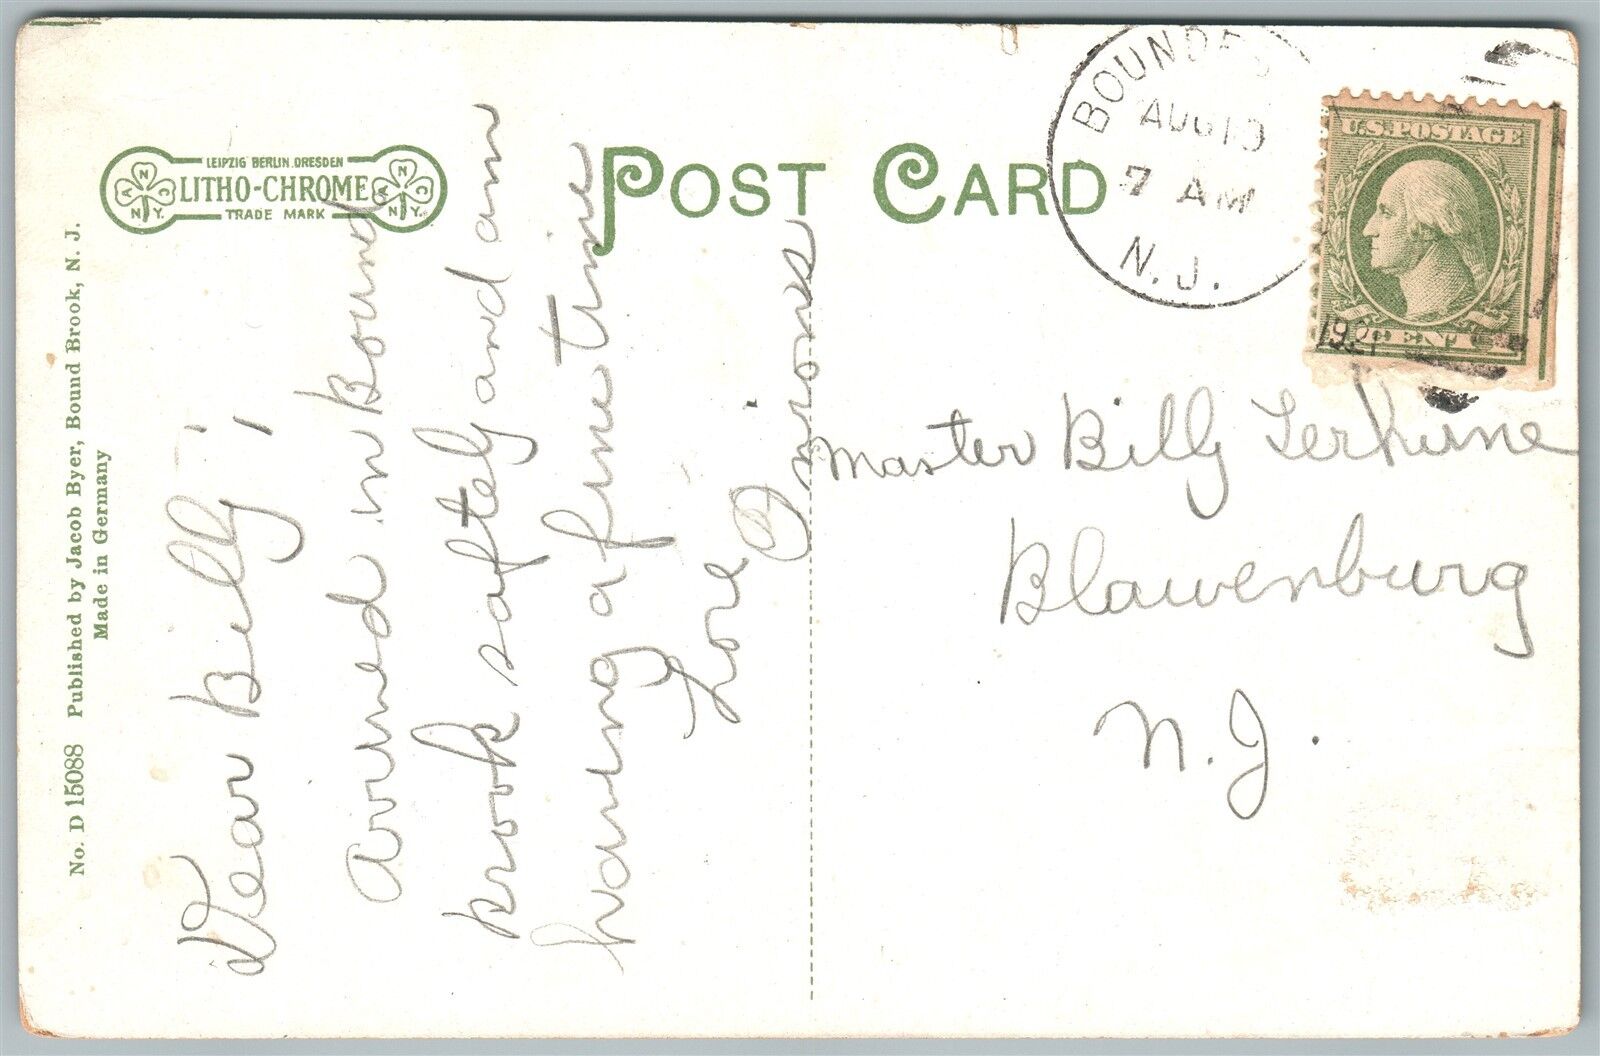 No. D 15088 Published by Jacob Byer, Bound Brook, N. J.
Made in Germany
LEIPZIG BERLIN DRESDEN
LITHO-CHROME
TRADE MARK
ANC
N.Y.
ANC
N.Y.
POST CARD
AUG 19
7 AM
N.J.
U.S. POSTAGE
1921
Dear Billy;
Arrived in Bound
Brook saftely and am
having a fine time
Love
Master Billy Terhune
Blawenburg
N.J.